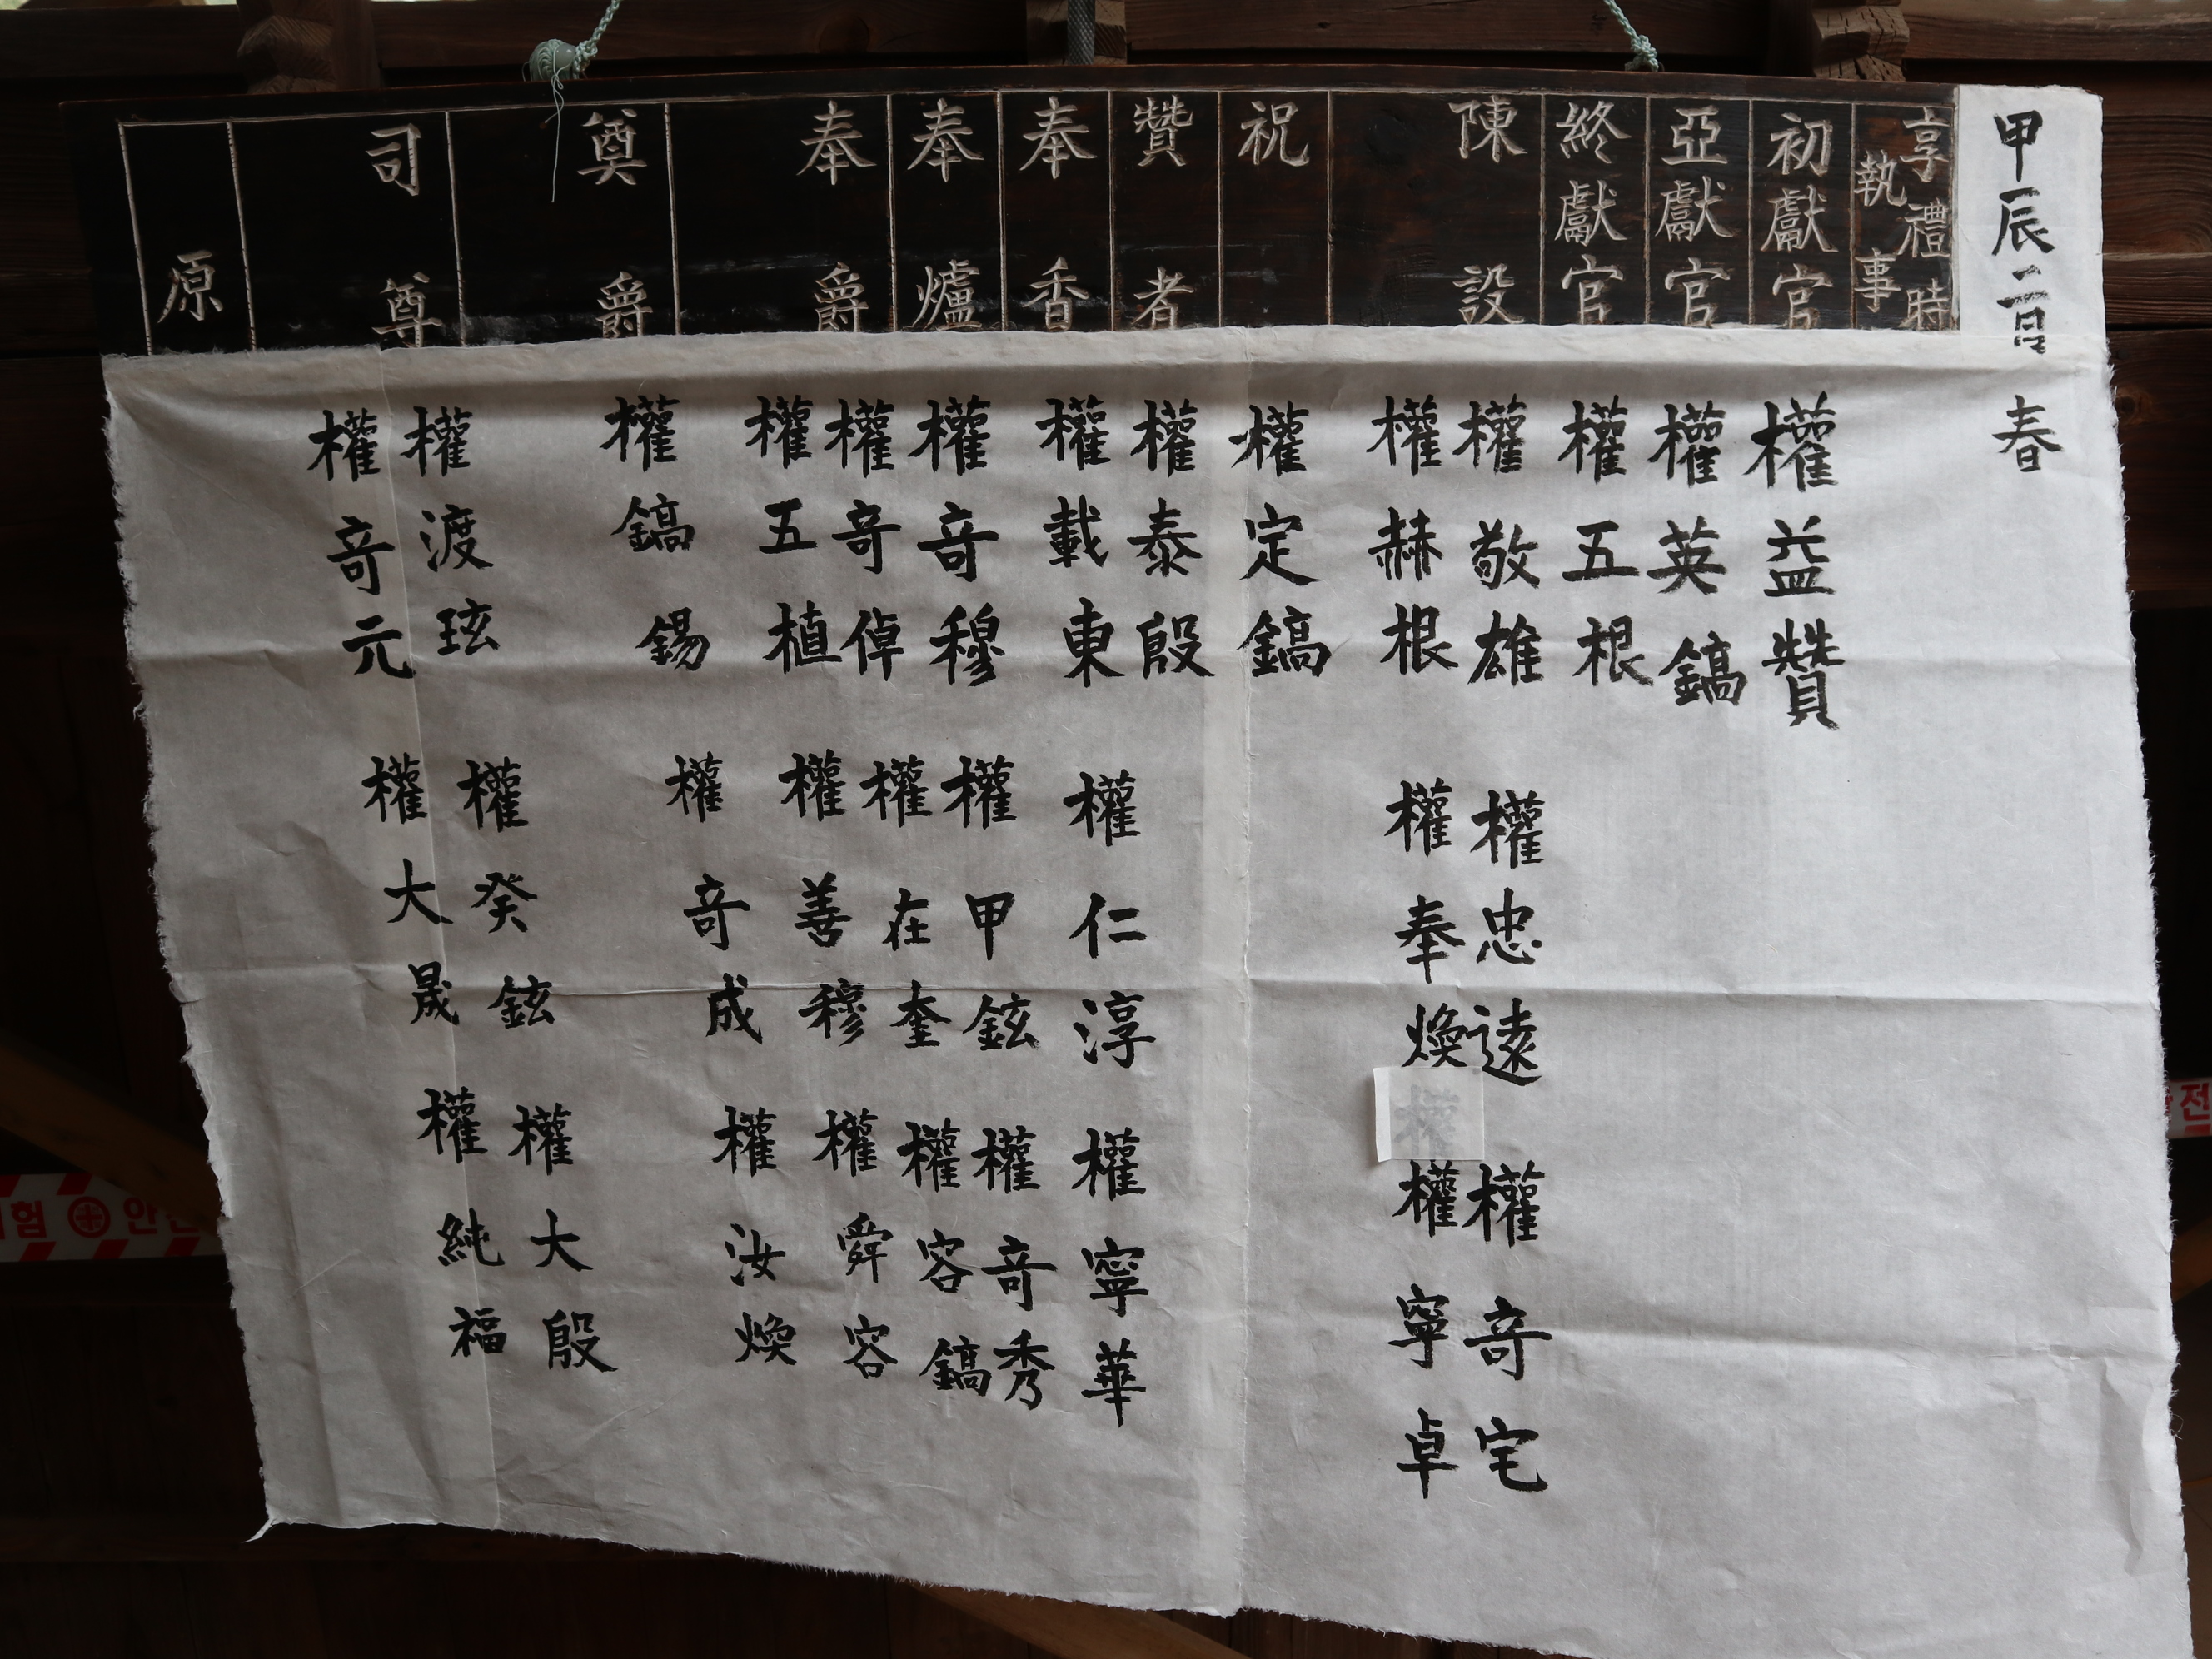 甲辰二月日 春
享禮時
執事
初獻官
亞獻官
終獻官
陳設
祝
贊者
奉香
奉爐
奉爵
奠爵
司尊
原
權益贊
權英鎬
權五根
權敬雄 權忠遠 權竒宅
權赫根 權奉煥 權寧卓
權定鎬
權泰殷
權載東 權仁淳 權寧華
權竒穆 權甲鉉 權竒秀
權竒倬 權在奎 權容鎬
權五植 權善穆 權舜容
權鎬錫 權竒成 權汝煥
權渡玹 權癸鉉 權大殷
權竒元 權大晟 權純福